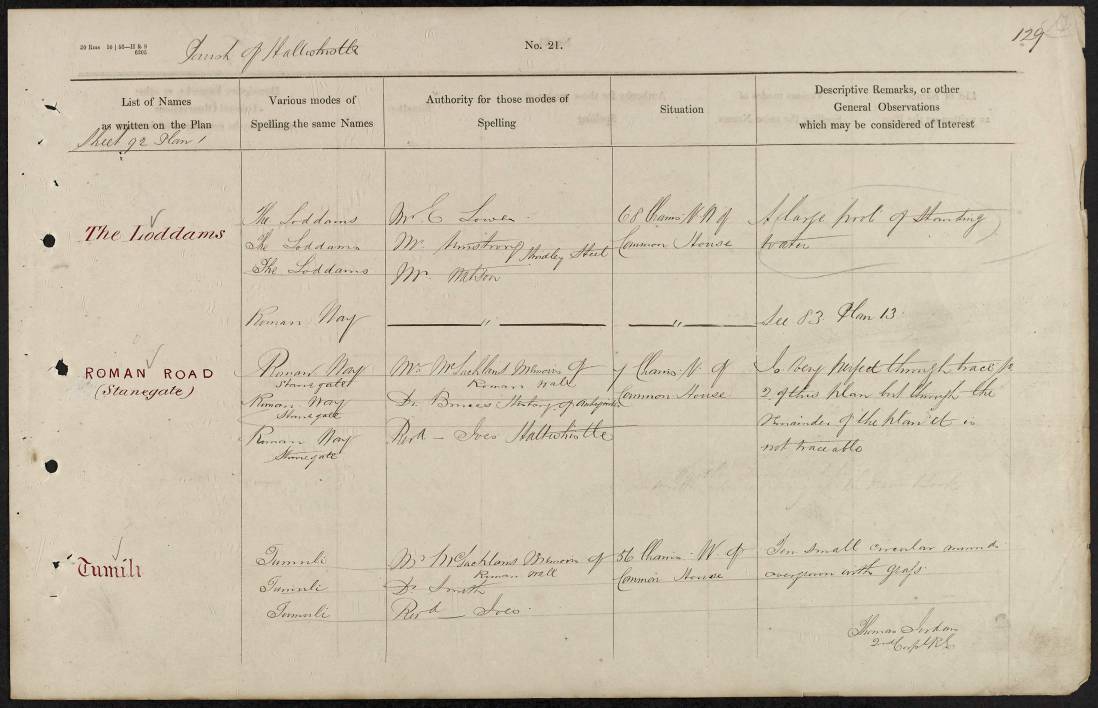 129
20 Rms 10 | 56—H & S
6205
Parish of Haltwhistle
No. 21.
List of Names
as written on the Plan
Various modes of
Spelling the same Names
Authority for those modes of
Spelling
Situation
Descriptive Remarks, or other
General Observations
which may be considered of Interest
Sheet 92 Plan 1
The Loddams
The Loddams
The Loddams
The Loddams
Mr. C Lowes
Mr. Armstrong Hindley Steel
Mr. Watson
68 Chains N.W. of
Common House
A large pool of Standing
Water
Roman Way
"
"
See 83. Plan 13
ROMAN ROAD
(Stanegate)
Roman Way
Stanegate
Roman Way
Stanegate
Roman Way
Stanegate
Mr. McLachlans Memoirs of
Roman Wall
Dr. Bruces History of
Revd — Ives Haltwhistle
7 Chains N. of
Common House
Is very perfect through trace
2 of this plan but through the
remainder of the plan it is
not traceable
Tumuli
Tumuli
Tumuli
Tumuli
Mr. McLachlans Memoirs of
Roman Wall
Dr Smith
Revd — Ives
56 Chains W. of
Common House
Ten small circular mounds
overgrown with grass
Thomas Jordan
2nd Corpl R.E.